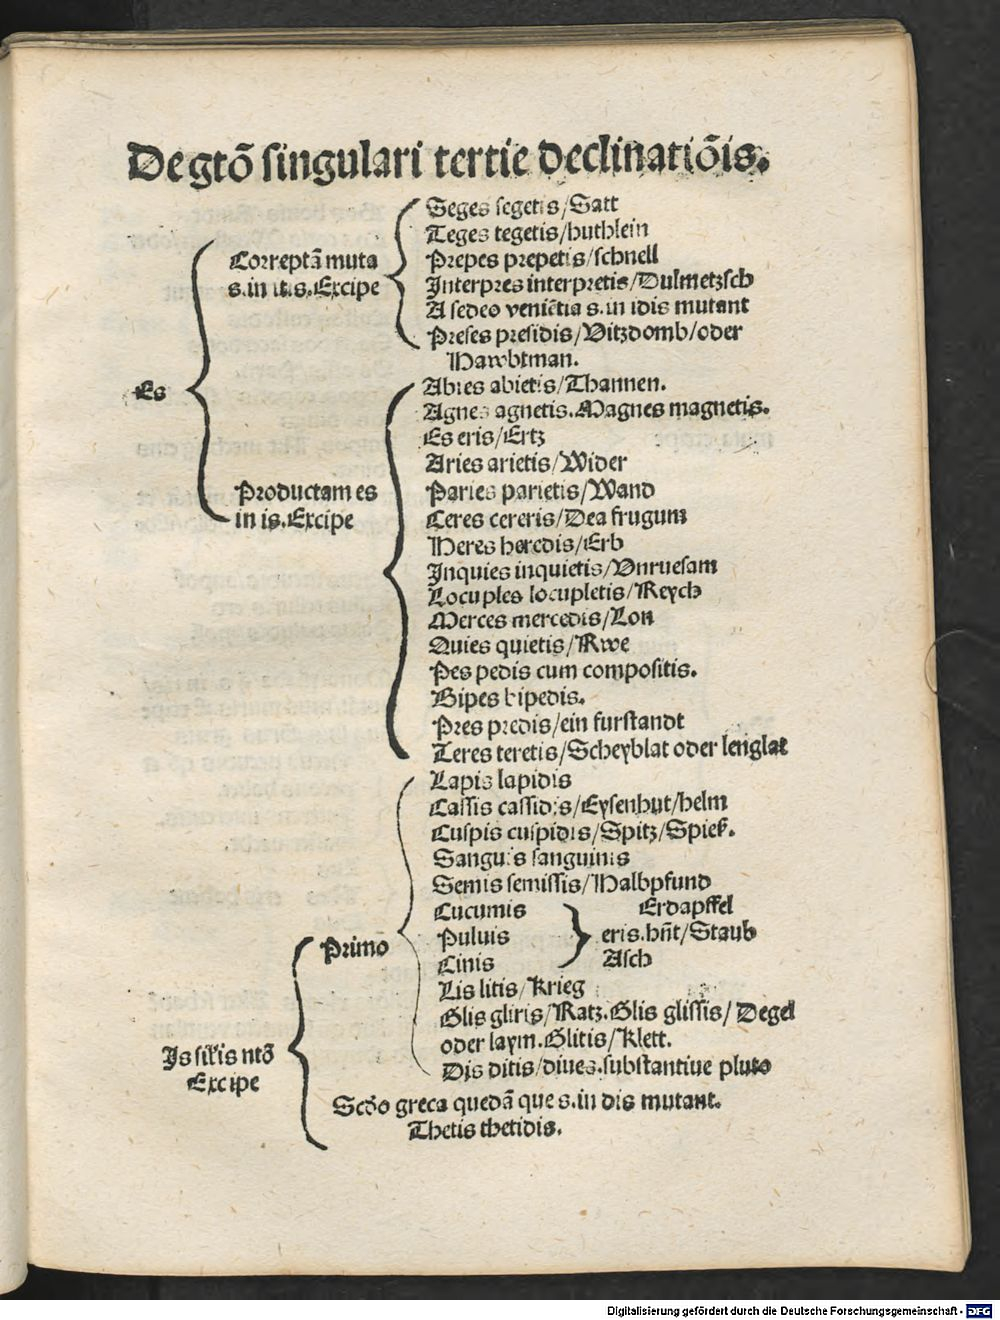 De gtō singulari tertie declinatiōis.
Es
Correptā muta
s. in it.s. Excipe
Seges segetis/Satt
Teges tegetis/huthlein
Prepes prepetis/schnell
Interpres interpretis/Dulmetzsch
A sedeo veniētia s. in idis mutant
Preses presidis/Vitzdomb/oder
Hawbtman.
Productam es
in is. Excipe
Abies abietis/Thannen.
Agnes agnetis. Magnes magnetis.
Es eris/Ertz
Aries arietis/Wider
Paries parietis/Wand
Ceres cereris/Dea frugum
Heres heredis/Erb
Inquies inquietis/Vnruesam
Locuples locupletis/Reych
Merces mercedis/Lon
Quies quietis/Rwe
Pes pedis cum compositis.
Bipes bipedis.
Pres predis/ein furstandt
Teres teretis/Scheyblat oder lenglat
Is sil'is ntō
Excipe
Primo
Lapis lapidis
Cassis cassidis/Eysenhut/helm
Cuspis cuspidis/Spitz/Spieß.
Sanguis sanguinis
Semis semissis/Halbpfund
Cucumis Erdapffel
Puluis eris. hn̄t/Staub
Cinis Asch
Lis litis/Krieg
Glis gliris/Ratz. Glis glissis/Degel
oder laym. Glitis/Klett.
Dis ditis/diues. substantiue pluto
Scdo greca quedā que s. in dis mutant.
Thetis thetidis.
Digitalisierung gefördert durch die Deutsche Forschungsgemeinschaft - DFG